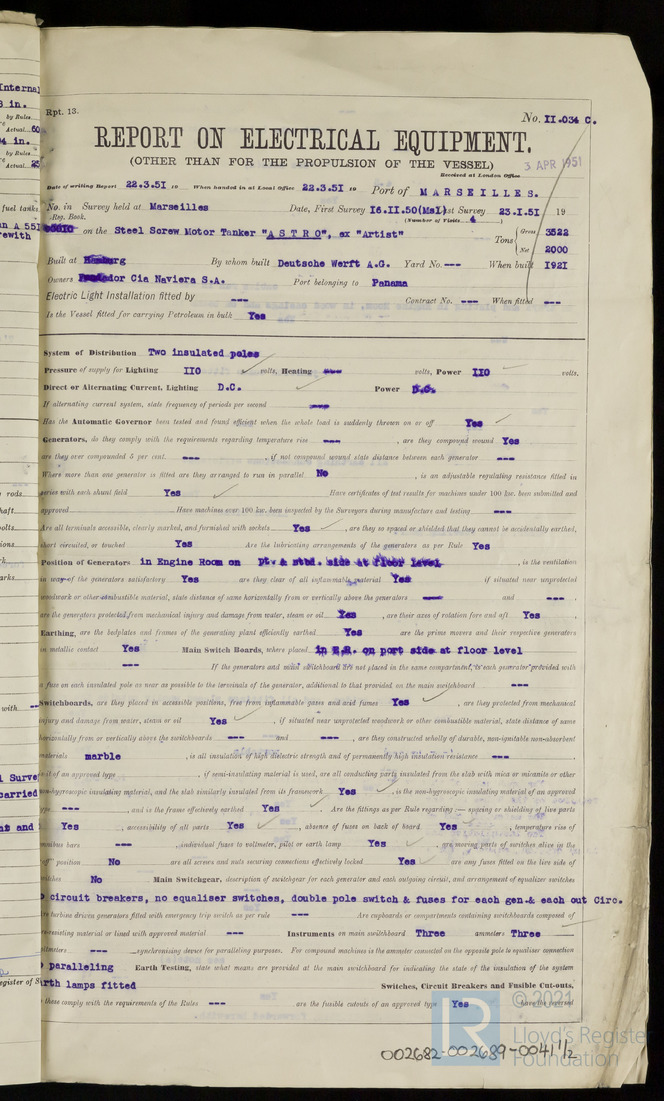 Internal
3 in.
by Rules
Actual 60
4 in.
by Rules
Actual 25
fuel tanks
an A 551
rewith
rods
haft
bolts
ions
rk
arks
with --
l Surve
carried
nt and
egister of S
Rpt. 13.
No. II.034 C.
REPORT ON ELECTRICAL EQUIPMENT.
(OTHER THAN FOR THE PROPULSION OF THE VESSEL)
Received at London Office 3 APR 1951
Date of writing Report 22.3.5I 19 When handed in at Local Office 22.3.5I 19 Port of MARSEILLES.
No. in Survey held at Marseilles Date, First Survey I6.II.50(Mal) Last Survey 23.I.5I 19
Reg. Book. (Number of Visits 4)
on the Steel Screw Motor Tanker "ASTRO", ex "Artist" Tons Gross 3522
Net 2000
Built at Hamburg By whom built Deutsche Werft A.G. Yard No. --- When built I92I
Owners Cia Naviera S.A. Port belonging to Panama
Electric Light Installation fitted by --- Contract No. --- When fitted ---
Is the Vessel fitted for carrying Petroleum in bulk Yes
System of Distribution Two insulated poles
Pressure of supply for Lighting IIO volts, Heating --- volts, Power IIO volts.
Direct or Alternating Current, Lighting D.C. Power D.C.
If alternating current system, state frequency of periods per second ---
Has the Automatic Governor been tested and found efficient when the whole load is suddenly thrown on or off Yes
Generators, do they comply with the requirements regarding temperature rise ---, are they compound wound Yes
are they over compounded 5 per cent. ---, if not compound wound state distance between each generator ---
Where more than one generator is fitted are they arranged to run in parallel No, is an adjustable regulating resistance fitted in
series with each shunt field Yes Have certificates of test results for machines under 100 kw. been submitted and
approved Have machines over 100 kw. been inspected by the Surveyors during manufacture and testing ---
Are all terminals accessible, clearly marked, and furnished with sockets Yes, are they so spaced or shielded that they cannot be accidentally earthed,
short circuited, or touched Yes Are the lubricating arrangements of the generators as per Rule Yes
Position of Generators in Engine Room on pt. & stbd. side at floor level, is the ventilation
in way of the generators satisfactory Yes are they clear of all inflammable material Yes if situated near unprotected
woodwork or other combustible material, state distance of same horizontally from or vertically above the generators --- and ---,
are the generators protected from mechanical injury and damage from water, steam or oil Yes, are their axes of rotation fore and aft Yes,
Earthing, are the bedplates and frames of the generating plant efficiently earthed Yes are the prime movers and their respective generators
in metallic contact Yes Main Switch Boards, where placed in E.R. on port side at floor level
--- If the generators and main switchboard are not placed in the same compartment, is each generator provided with
a fuse on each insulated pole as near as possible to the terminals of the generator, additional to that provided on the main switchboard ---
Switchboards, are they placed in accessible positions, free from inflammable gases and acid fumes Yes, are they protected from mechanical
injury and damage from water, steam or oil Yes, if situated near unprotected woodwork or other combustible material, state distance of same
horizontally from or vertically above the switchboards --- and ---, are they constructed wholly of durable, non-ignitable non-absorbent
materials marble, is all insulation of high dielectric strength and of permanently high insulation resistance ---,
is it of an approved type, if semi-insulating material is used, are all conducting parts insulated from the slab with mica or micanite or other
non-hygroscopic insulating material, and the slab similarly insulated from its framework Yes, is the non-hygroscopic insulating material of an approved
type ---, and is the frame effectively earthed Yes. Are the fittings as per Rule regarding:— spacing or shielding of live parts
Yes, accessibility of all parts Yes, absence of fuses on back of board Yes, temperature rise of
omnibus bars ---, individual fuses to voltmeter, pilot or earth lamp Yes, are moving parts of switches alive in the
"off" position No are all screws and nuts securing connections effectively locked Yes are any fuses fitted on the live side of
switches No Main Switchgear, description of switchgear for each generator and each outgoing circuit, and arrangement of equalizer switches
circuit breakers, no equaliser switches, double pole switch & fuses for each gen.& each out Circ.
Are turbine driven generators fitted with emergency trip switch as per rule --- Are cupboards or compartments containing switchboards composed of
fire-resisting material or lined with approved material --- Instruments on main switchboard Three ammeters Three
voltmeters --- synchronising device for paralleling purposes. For compound machines is the ammeter connected on the opposite pole to equaliser connection
paralleling Earth Testing, state what means are provided at the main switchboard for indicating the state of the insulation of the system
rth lamps fitted Switches, Circuit Breakers and Fusible Cut-outs,
do these comply with the requirements of the Rules --- are the fusible cutouts of an approved type Yes have the reversed
© 2021
Lloyd's Register
Foundation
002682-002689-0041 1/2